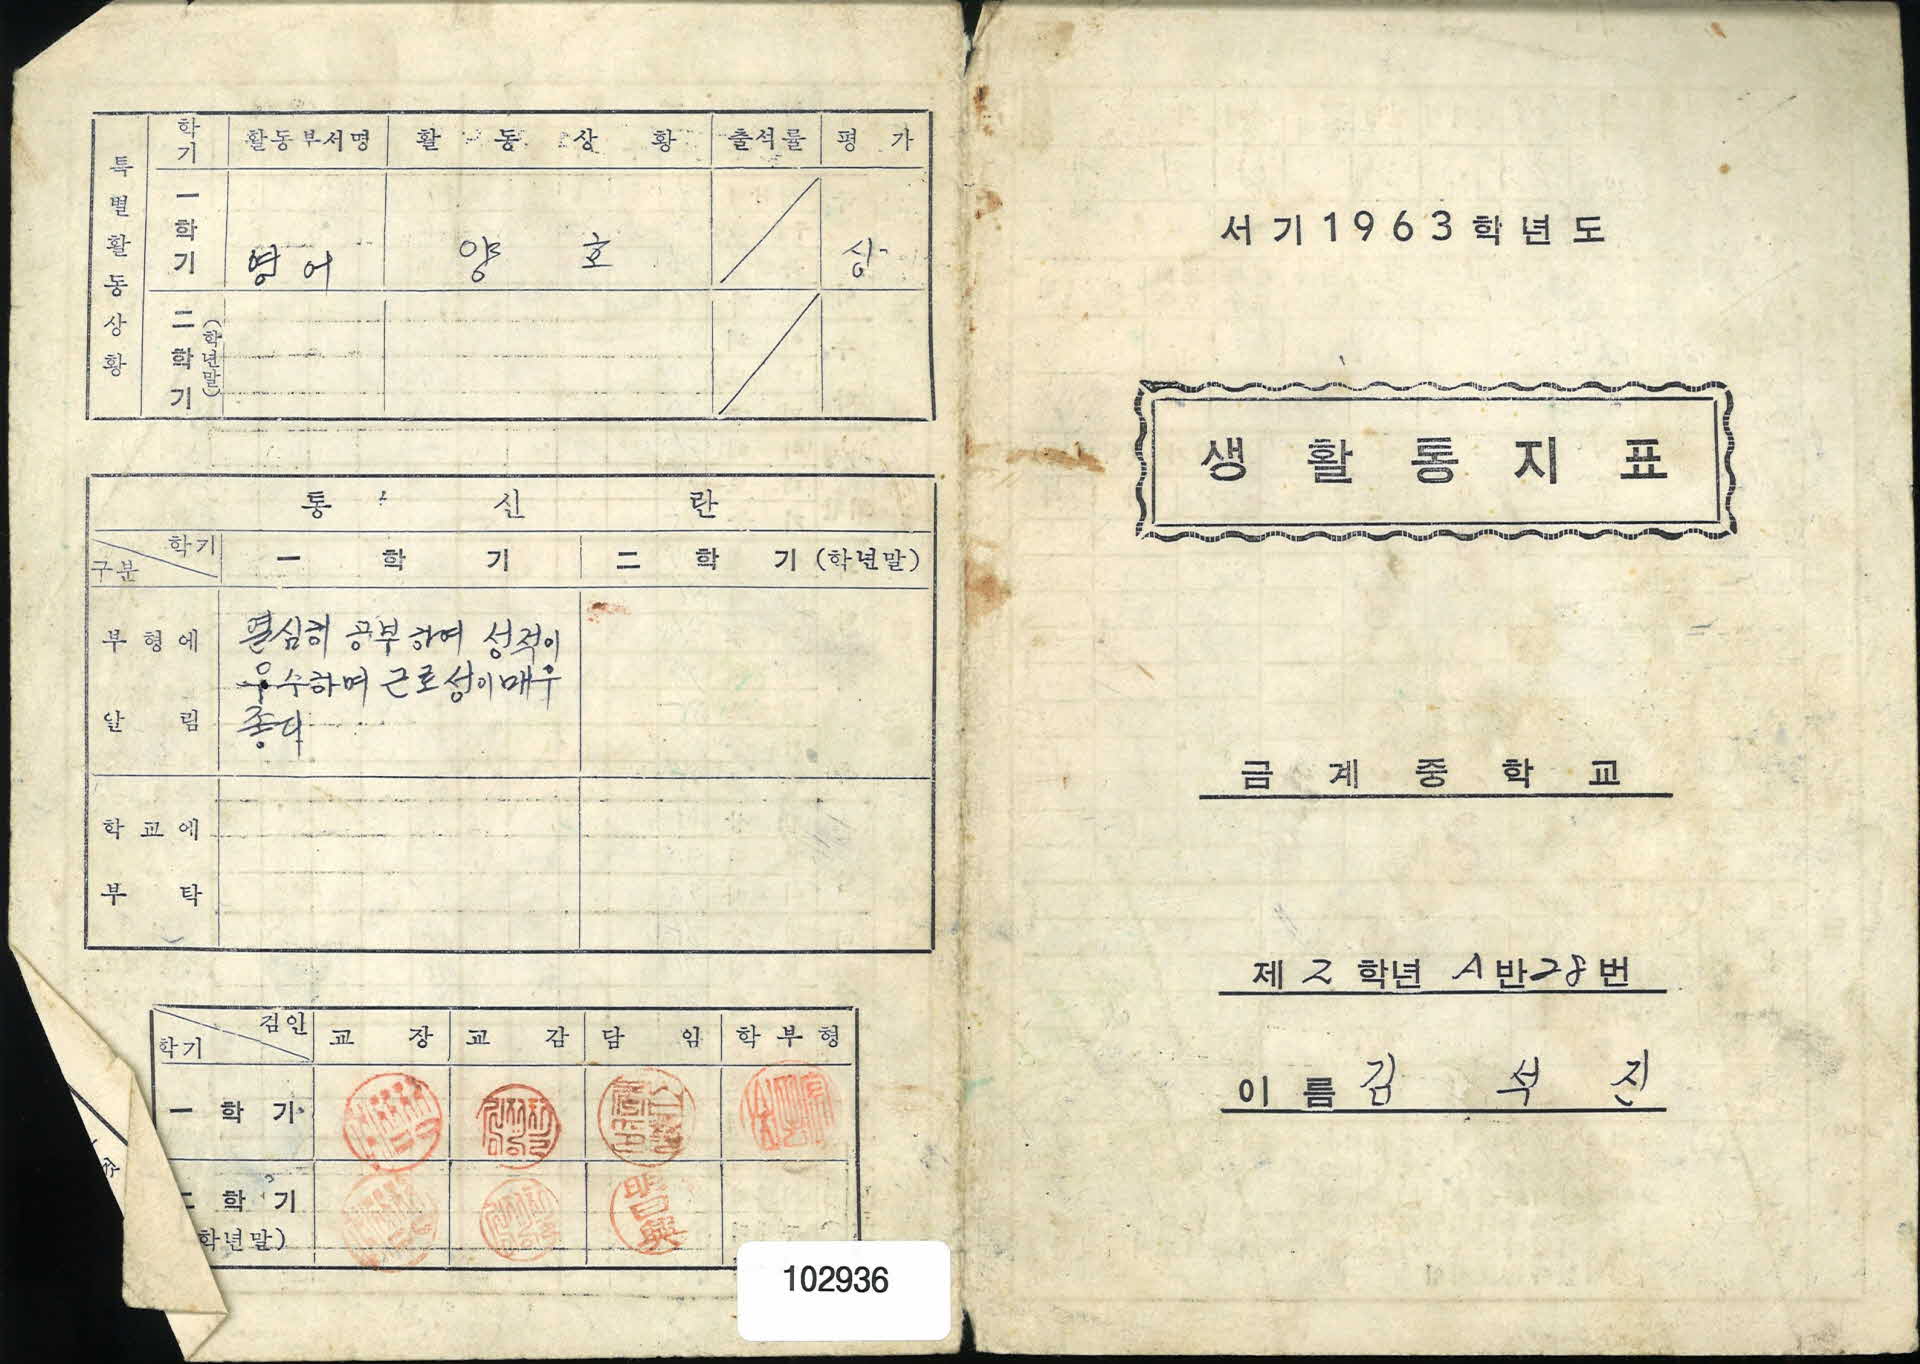 특별활동상황
학기 활동부서명 활동상황 출석률 평가
一학기 영어 양호 상
二학기 (학년말)
통신란
학기 구분 一학기 二학기 (학년말)
부형에 알림
열심히 공부하여 성적이
우수하며 근로성이 매우
좋다
학교에 부탁
검인 학기 교장 교감 담임 학부형
一학기
二학기
학년말)
102936
서기1963학년도
생활통지표
금계중학교
제2학년 A반28번
이름 김석진